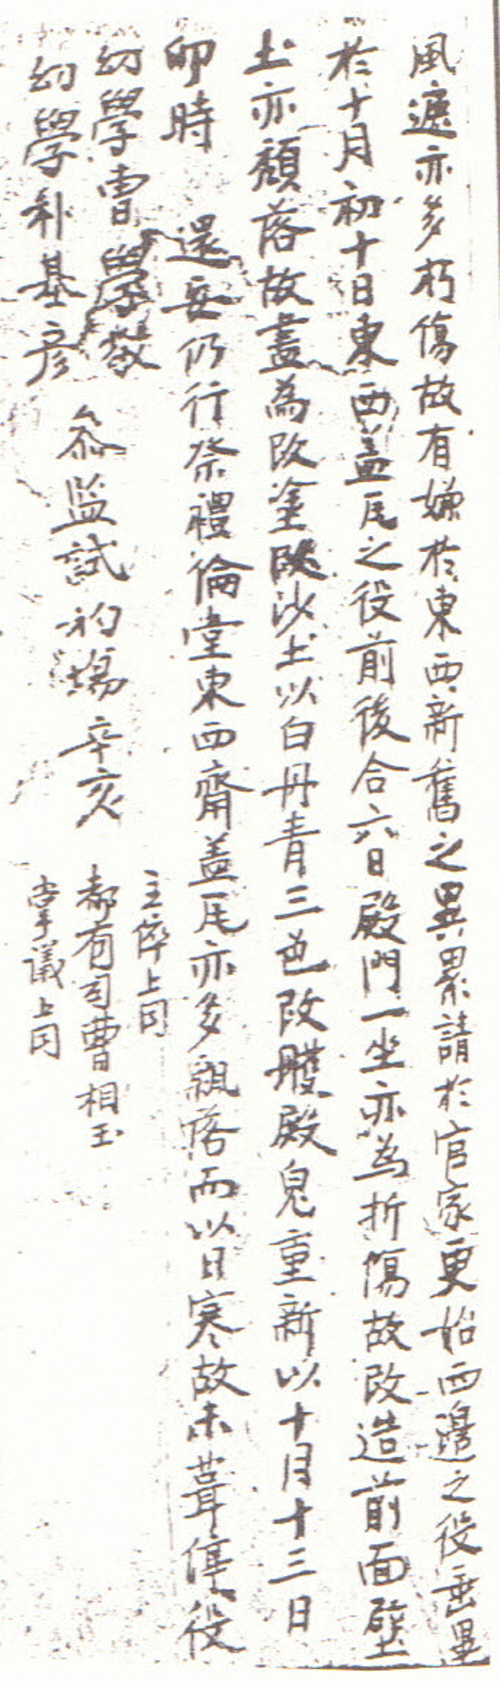 風邊亦多朽傷故有嫌於東西新舊之異累請於官家更始西邊之役垂畢
於十月初十日東西盖瓦之役前後合六日殿門一坐亦為折傷故改造前面壁
土亦頹落故盡為改塗 沙土以白丹青三色改雘殿皃重新以十月十三日
卯時 還安仍行祭禮倫堂東西齋盖瓦亦多飄落而以日寒故未葺停役
幼學曺學敬
幼學朴基彦
叅監試初塲辛亥
主倅上同
都有司曺相玉
掌議上同